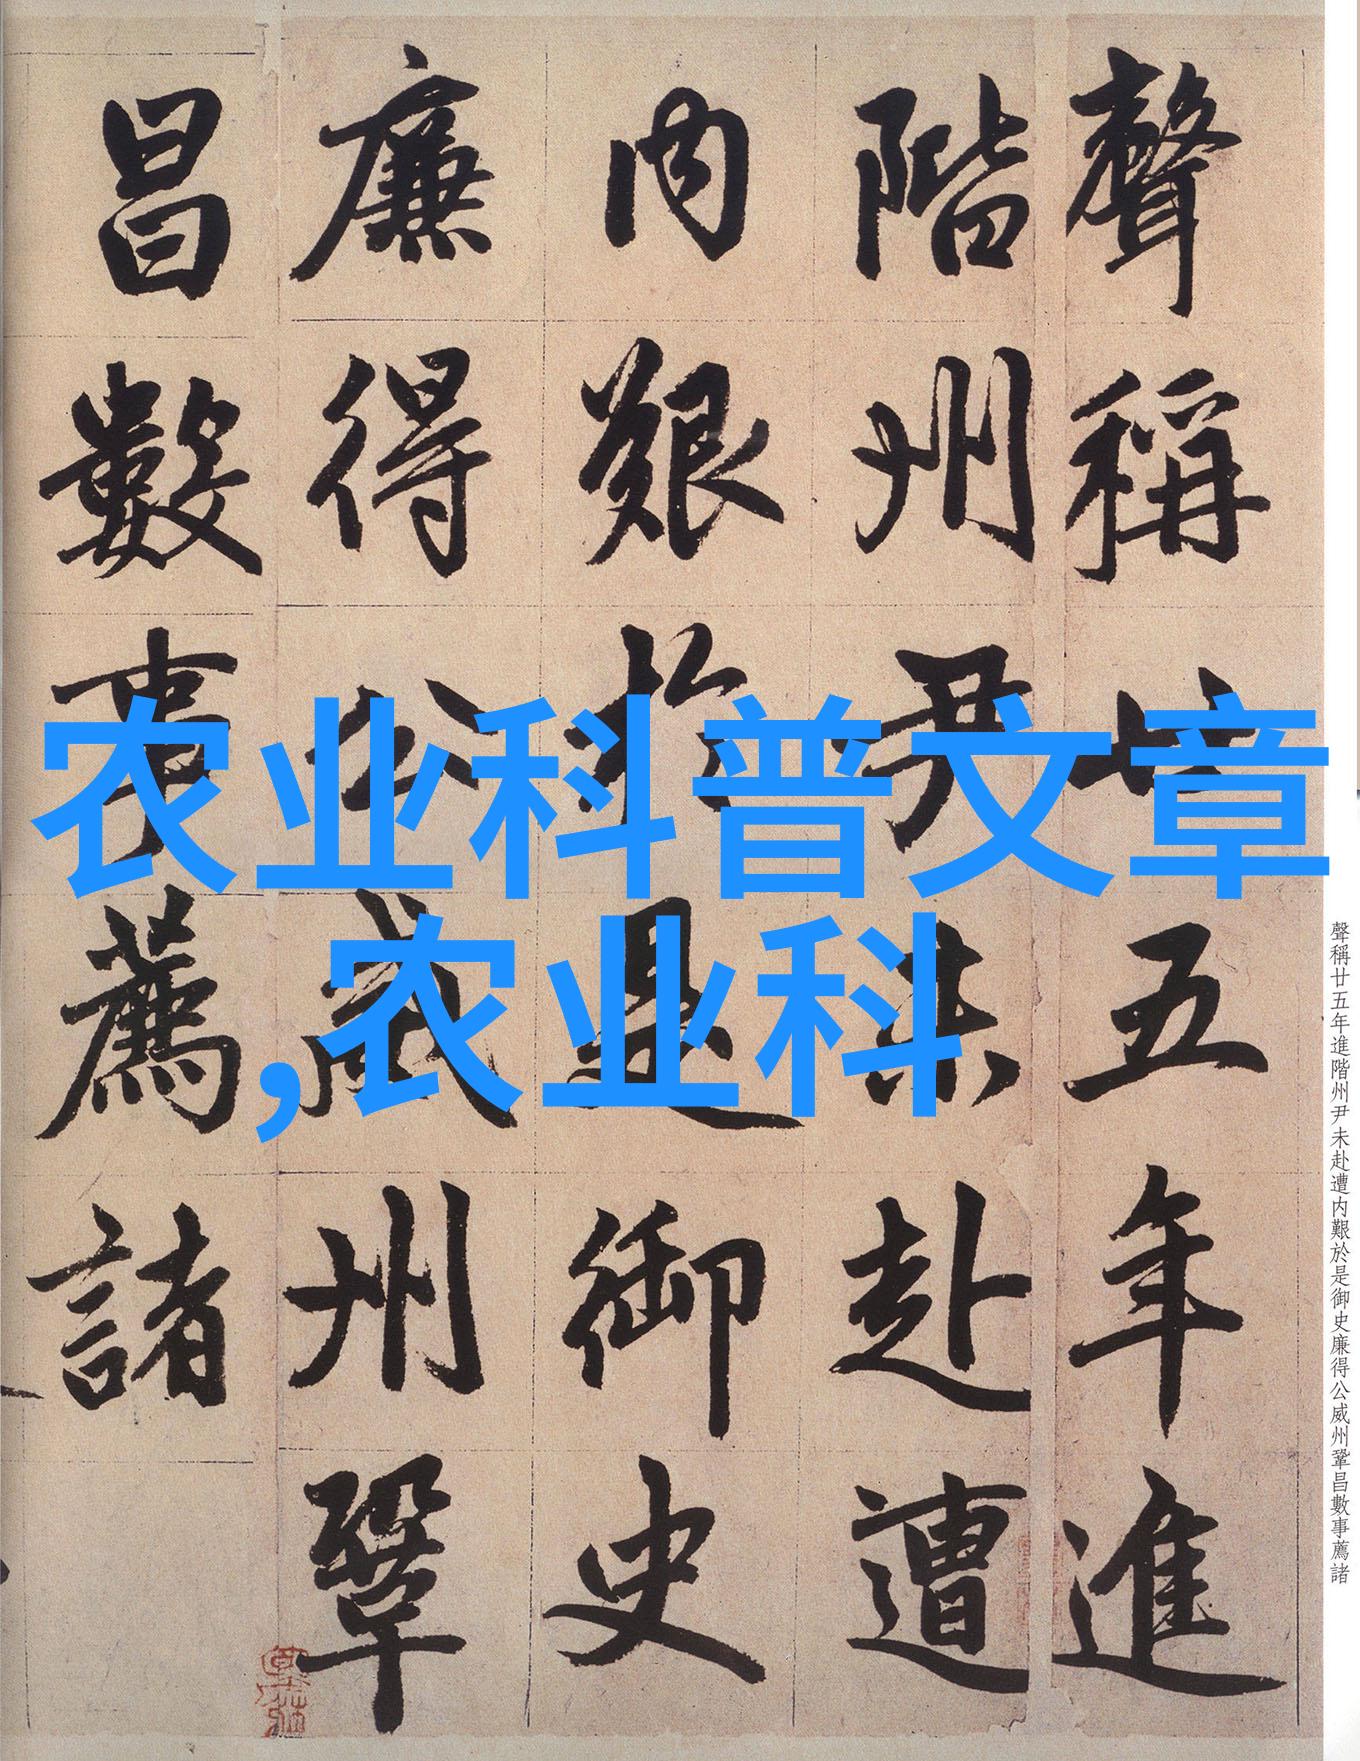 聲稱廿五年進
階州尹未赴遭
内艱於是御史
廉得公威州鞏
昌數事薦諸
农业科普文章
,农业科
聲稱廿五年進階州尹未赴遭内艱於是御史廉得公威州鞏昌數事薦諸